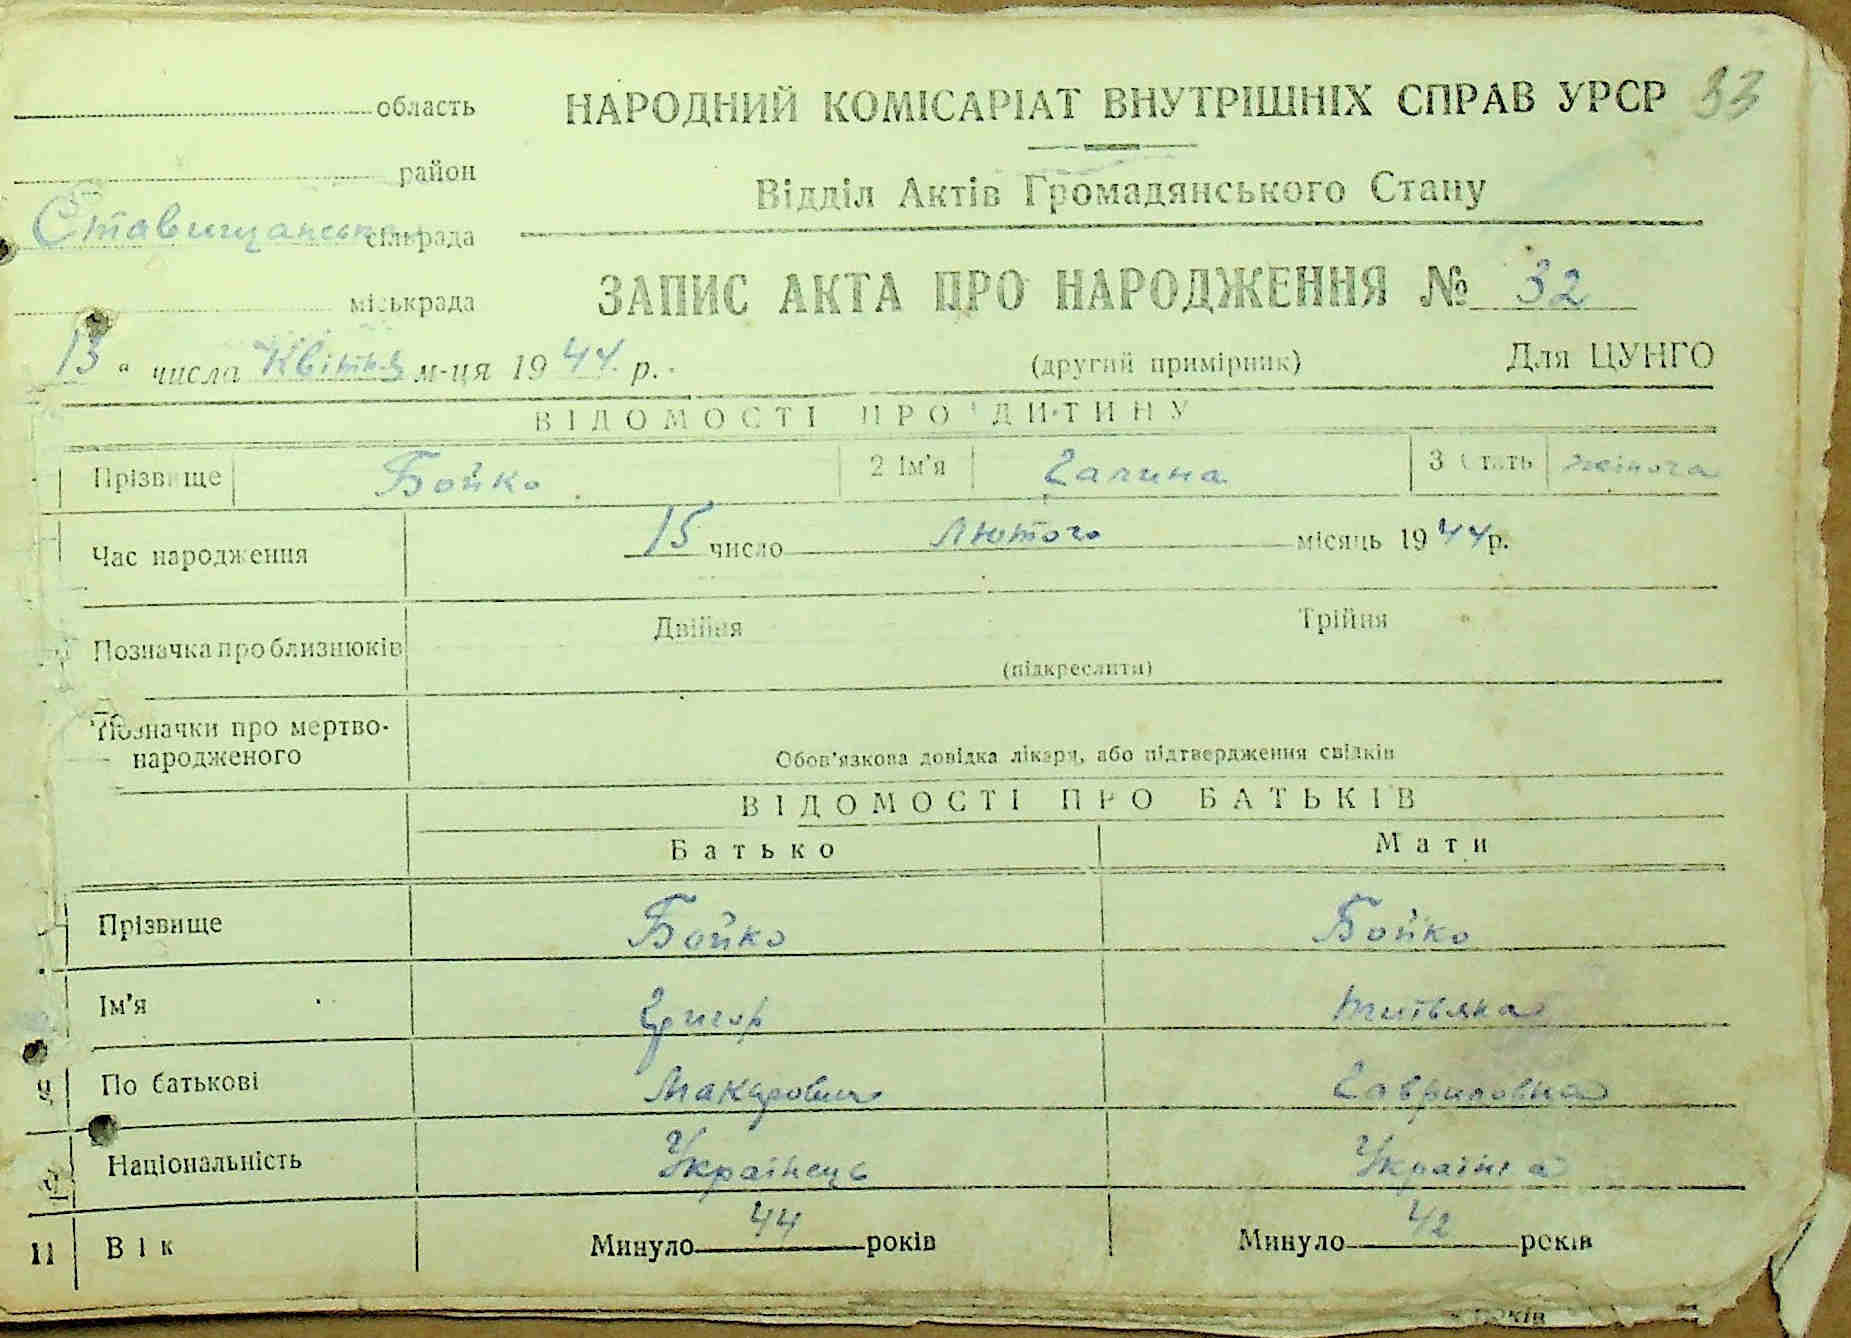 область
НАРОДНИЙ КОМІСАРІАТ ВНУТРІШНІХ СПРАВ УРСР 33
район
Відділ Актів Громадянського Стану
Ставищанськ сільрада
міськрада
ЗАПИС АКТА ПРО НАРОДЖЕННЯ № 32
13 " числа Квітня м-ця 1944 р.
(другий примірник)
Для ЦУНГО
ВІДОМОСТІ ПРО ДИТИНУ
Прізвище Бойко 2 Ім'я Галина 3 Стать жіноча
Час народження 15 число Лютого місяць 1944 р.
Позначка про близнюків Двійня Трійня
(підкреслити)
Позначки про мертво-
народженого
Обов'язкова довідка лікаря, або підтвердження свідків
ВІДОМОСТІ ПРО БАТЬКІВ
Батько Мати
Прізвище Бойко Бойко
Ім'я Григор Титьяна
По батькові Макарович Гавриловна
Національність Українець Українка
11 Вік Минуло 44 років Минуло 42 років